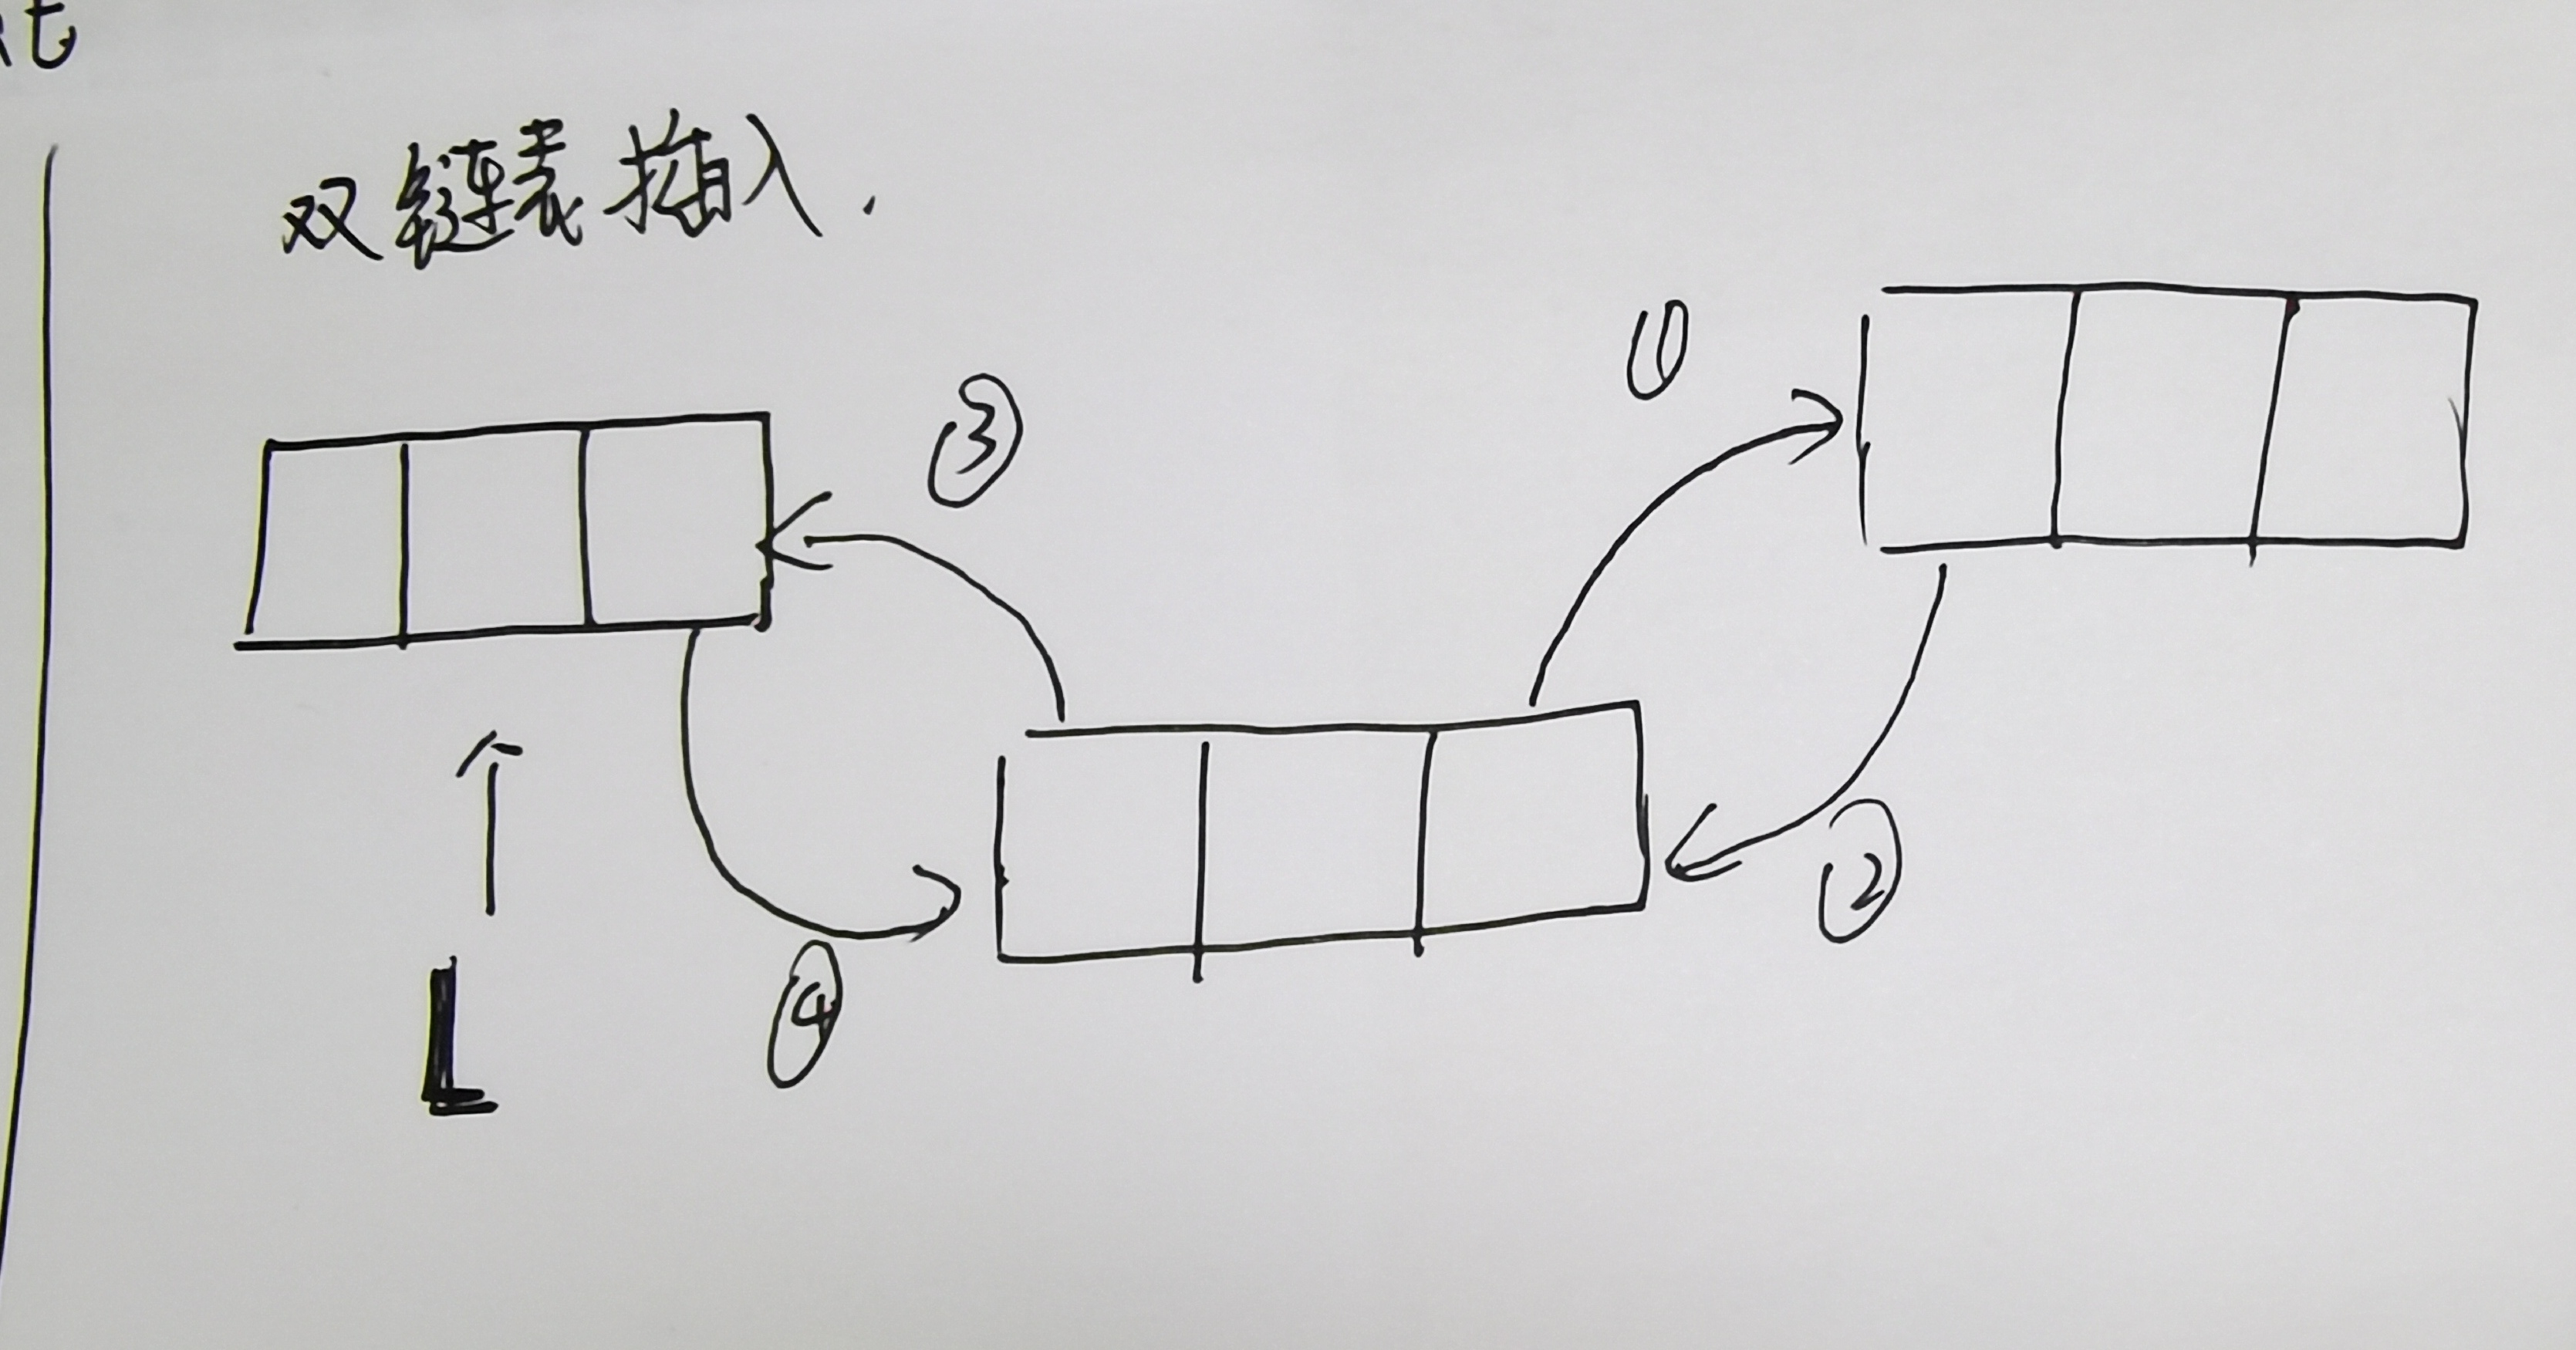 双链表插入.
①
③
②
④
L